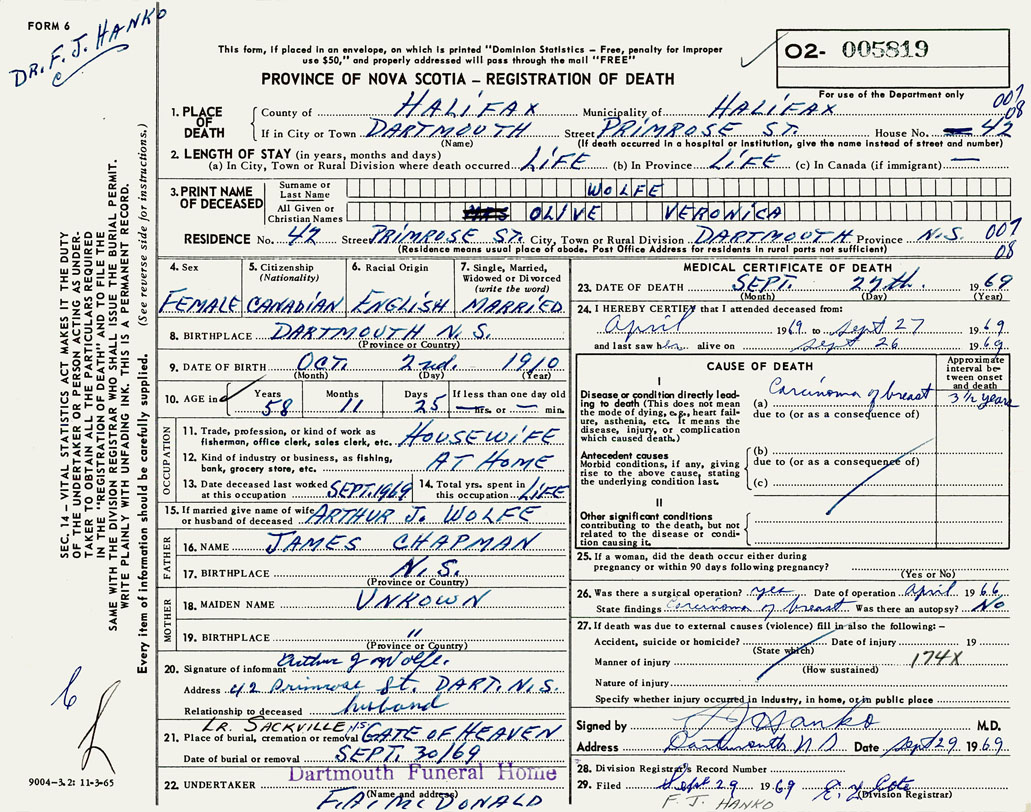 FORM 6
DR. F. J. HANKO
This form, if placed in an envelope, on which is printed "Dominion Statistics – Free, penalty for improper
use $50," and properly addressed will pass through the mail "FREE"
O2- 005819
PROVINCE OF NOVA SCOTIA – REGISTRATION OF DEATH
For use of the Department only
007
08
1. PLACE OF DEATH County of HALIFAX Municipality of HALIFAX
If in City or Town DARTMOUTH Street PRIMROSE ST. House No. 42
(Name) (If death occurred in a hospital or institution, give the name instead of street and number)
2. LENGTH OF STAY (in years, months and days)
(a) In City, Town or Rural Division where death occurred LIFE (b) In Province LIFE (c) In Canada (if immigrant) —
3. PRINT NAME OF DECEASED
Surname or Last Name WOLFE
All Given or Christian Names OLIVE VERONICA
RESIDENCE No. 42 Street PRIMROSE ST. City, Town or Rural Division DARTMOUTH Province N.S. 007
08
(Residence means usual place of abode. Post Office Address for residents in rural parts not sufficient)
4. Sex
FEMALE
5. Citizenship
(Nationality)
CANADIAN
6. Racial Origin
ENGLISH
7. Single, Married,
Widowed or Divorced
(write the word)
MARRIED
8. BIRTHPLACE DARTMOUTH N.S.
(Province or Country)
9. DATE OF BIRTH OCT. 2nd. 1910
(Month) (Day) (Year)
10. AGE in Years Months Days If less than one day old
58 11 25 hrs. or — min.
OCCUPATION
11. Trade, profession, or kind of work as
fisherman, office clerk, sales clerk, etc. HOUSEWIFE
12. Kind of industry or business, as fishing,
bank, grocery store, etc. AT HOME
13. Date deceased last worked
at this occupation SEPT. 1969
14. Total yrs. spent in
this occupation LIFE
15. If married give name of wife
or husband of deceased ARTHUR J. WOLFE
FATHER
16. NAME JAMES CHAPMAN
17. BIRTHPLACE N.S.
(Province or Country)
MOTHER
18. MAIDEN NAME UNKOWN
19. BIRTHPLACE "
(Province or Country)
20. Signature of informant Arthur J Wolfe.
Address 42 Primrose St. DART. N.S.
Relationship to deceased husband
LR. SACKVILLE
21. Place of burial, cremation or removal GATE OF HEAVEN
Date of burial or removal SEPT. 30/69
22. UNDERTAKER Dartmouth Funeral Home
(Name and address)
F.A. McDONALD
MEDICAL CERTIFICATE OF DEATH
23. DATE OF DEATH SEPT. 27th. 1969
(Month) (Day) (Year)
24. I HEREBY CERTIFY that I attended deceased from:
April 1969 to Sept 27 1969
and last saw her alive on Sept 26 1969
CAUSE OF DEATH
Approximate
interval be-
tween onset
and death
I
Disease or condition directly lead-
ing to death (This does not mean
the mode of dying, e.g., heart fail-
ure, asthenia, etc. It means the
disease, injury, or complication
which caused death.)
(a) Carcinoma of breast 3½ years
due to (or as a consequence of)
Antecedent causes
Morbid conditions, if any, giving
rise to the above cause, stating
the underlying condition last.
(b)
due to (or as a consequence of)
(c)
II
Other significant conditions
contributing to the death, but not
related to the disease or condi-
tion causing it.
25. If a woman, did the death occur either during
pregnancy or within 90 days following pregnancy?
(Yes or No)
26. Was there a surgical operation? yes Date of operation April 1966
State findings Carcinoma of breast Was there an autopsy? No
27. If death was due to external causes (violence) fill in also the following:–
Accident, suicide or homicide? Date of injury 19
(State which)
Manner of injury 174X
(How sustained)
Nature of injury
Specify whether injury occurred in industry, in home, or in public place
Signed by F J Hanko M.D.
Address Dartmouth N S Date Sept 29 1969
28. Division Registrar's Record Number
29. Filed Sept 29 1969 Cote
(Division Registrar)
F. J. HANKO
SEC. 14 – VITAL STATISTICS ACT MAKES IT THE DUTY
OF THE UNDERTAKER OR PERSON ACTING AS UNDER-
TAKER TO OBTAIN ALL THE PARTICULARS REQUIRED
IN THE "REGISTRATION OF DEATH" AND TO FILE THE
SAME WITH THE DIVISION REGISTRAR WHO SHALL ISSUE THE BURIAL PERMIT.
WRITE PLAINLY WITH UNFADING INK. THIS IS A PERMANENT RECORD.
Every item of information should be carefully supplied. (See reverse side for instructions.)
9004–3.2: 11-3-65